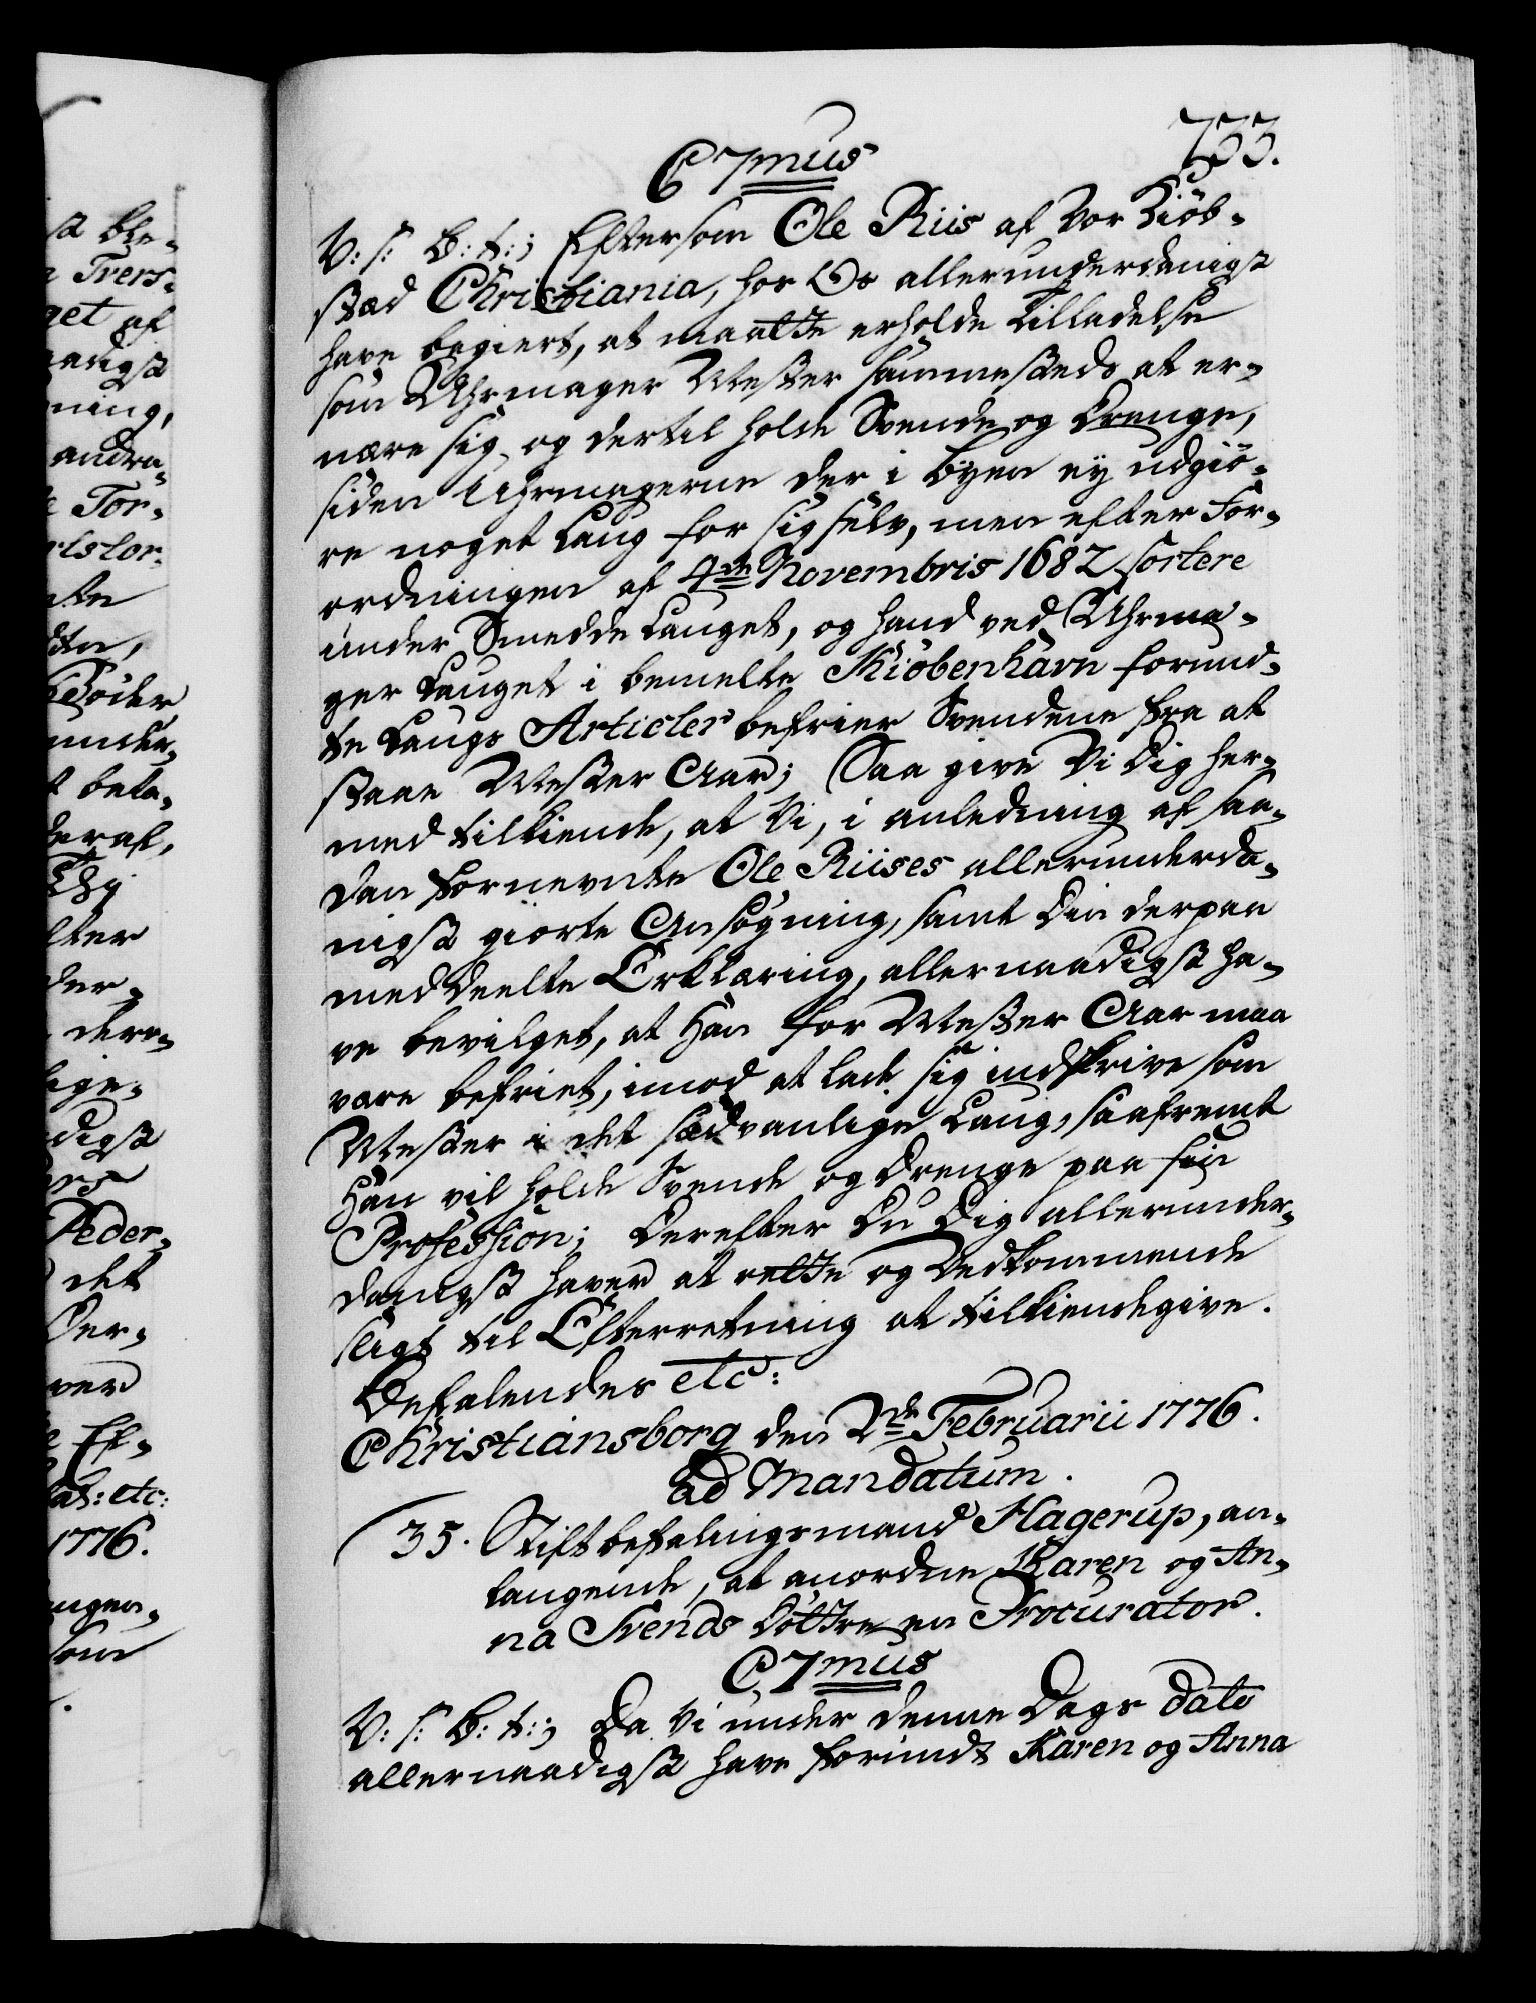 733.
C7mus
V: s: B: t:; Eftersom Ole Riis af Vor Kiöb-
stæd Christiania, hos Os allerunderdanigst
have begiert, at maatte erholde Tilladelse
som Uhrmager Mester sammesteds at er-
nære sig, og dertil holde Svende og Drenge,
siden Uhrmagerne der i Byen ey udgiö-
re noget Laug for sig selv, men efter For-
ordningen af 4de Novembris 1682 sortere
under Smedde Lauget, og hand ved Uhrma-
ger Lauget i bemelte Kiöbenhavn forund-
te Laugs Articler befrier Svendene fra at
staae Mester Aar; Saa give Vi Dig her-
med tilkiende, at Vi, i anledning af saa-
dan fornevnte Ole Riises allerunderda-
nigst giorte Ansögning, samt Din derpaa
meddeelte Erklæring, allernaadigst ha-
ve bevilget, at Han for Mester Aar maa
være befriet, imod at lade sig indskrive som
Mester i det sædvanlige Laug, saafremt
Han vil holde Svende og Drenge paa sin
Profession; Derefter Du Dig allerunder-
danigst haver at rette og Vedkommende
sligt til Efterretning at tilkiendegive.
Befalendes etc:
Christiansborg den 2de Februarii 1776.
Ad Mandatum.
35. Stiftbefalingsmand Hagerup, an-
langende, at anordne Karen og An-
na Svends Döttre en Procurator.
C7mus
V: s: B: t:; Da Vi under denne Dags Dato
allernaadigst have forundt Karen og Anna